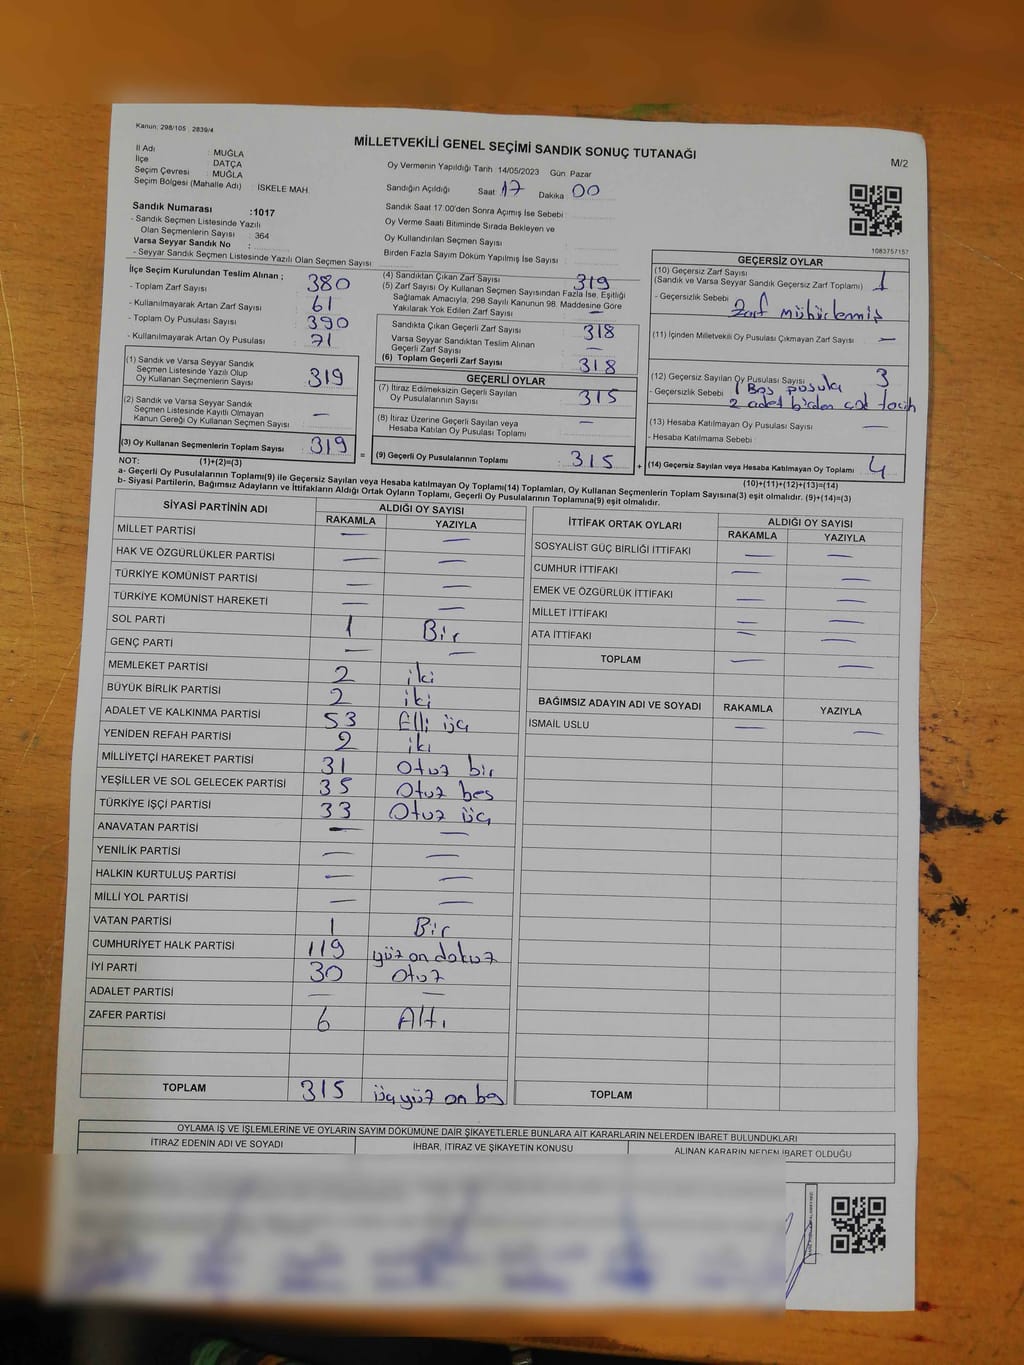 Kanun: 298/105 , 2839/4
MİLLETVEKİLİ GENEL SEÇİMİ SANDIK SONUÇ TUTANAĞI
M/2
İl Adı : MUĞLA
İlçe : DATÇA
Seçim Çevresi : MUĞLA
Seçim Bölgesi (Mahalle Adı) İSKELE MAH.
Sandık Numarası :1017
- Sandık Seçmen Listesinde Yazılı
Olan Seçmenlerin Sayısı : 364
Varsa Seyyar Sandık No :
- Seyyar Sandık Seçmen Listesinde Yazılı Olan Seçmen Sayısı:
Oy Vermenin Yapıldığı Tarih 14/05/2023 Gün Pazar
Sandığın Açıldığı Saat 17 Dakika 00
Sandık Saat 17.00'den Sonra Açılmış İse Sebebi
Oy Verme Saati Bitiminde Sırada Bekleyen ve
Oy Kullandırılan Seçmen Sayısı :
Birden Fazla Sayım Döküm Yapılmış İse Sayısı :
1083757157
İlçe Seçim Kurulundan Teslim Alınan ;
- Toplam Zarf Sayısı : 380
- Kullanılmayarak Artan Zarf Sayısı : 61
- Toplam Oy Pusulası Sayısı : 390
- Kullanılmayarak Artan Oy Pusulası : 71
(1) Sandık ve Varsa Seyyar Sandık
Seçmen Listesinde Yazılı Olup
Oy Kullanan Seçmenlerin Sayısı : 319
(2) Sandık ve Varsa Seyyar Sandık
Seçmen Listesinde Kayıtlı Olmayan
Kanun Gereği Oy Kullanan Seçmen Sayısı : —
(3) Oy Kullanan Seçmenlerin Toplam Sayısı : 319
(4) Sandıktan Çıkan Zarf Sayısı : 319
(5) Zarf Sayısı Oy Kullanan Seçmen Sayısından Fazla İse, Eşitliği
Sağlamak Amacıyla, 298 Sayılı Kanunun 98. Maddesine Göre
Yakılarak Yok Edilen Zarf Sayısı : —
Sandıkta Çıkan Geçerli Zarf Sayısı : 318
Varsa Seyyar Sandıktan Teslim Alınan
Geçerli Zarf Sayısı : —
(6) Toplam Geçerli Zarf Sayısı : 318
GEÇERLİ OYLAR
(7) İtiraz Edilmeksizin Geçerli Sayılan
Oy Pusulalarının Sayısı : 315
(8) İtiraz Üzerine Geçerli Sayılan veya
Hesaba Katılan Oy Pusulası Toplamı : —
= (9) Geçerli Oy Pusulalarının Toplamı : 315 +
GEÇERSİZ OYLAR
(10) Geçersiz Zarf Sayısı
(Sandık ve Varsa Seyyar Sandık Geçersiz Zarf Toplamı) : 1
- Geçersizlik Sebebi : Zarf mühürlenmiş
(11) İçinden Milletvekili Oy Pusulası Çıkmayan Zarf Sayısı : —
(12) Geçersiz Sayılan Oy Pusulası Sayısı : 3
- Geçersizlik Sebebi : 1 Boş pusula
2 adet birden çok tercih
(13) Hesaba Katılmayan Oy Pusulası Sayısı : —
- Hesaba Katılmama Sebebi :
(14) Geçersiz Sayılan veya Hesaba Katılmayan Oy Toplamı : 4
NOT: (1)+(2)=(3)
(10)+(11)+(12)+(13)=(14)
a- Geçerli Oy Pusulalarının Toplamı(9) ile Geçersiz Sayılan veya Hesaba katılmayan Oy Toplamı(14) Toplamları, Oy Kullanan Seçmenlerin Toplam Sayısına(3) eşit olmalıdır. (9)+(14)=(3)
b- Siyasi Partilerin, Bağımsız Adayların ve İttifakların Aldığı Ortak Oyların Toplamı, Geçerli Oy Pusulalarının Toplamına(9) eşit olmalıdır.
SİYASİ PARTİNİN ADI ALDIĞI OY SAYISI
RAKAMLA YAZIYLA
MİLLET PARTİSİ — —
HAK VE ÖZGÜRLÜKLER PARTİSİ — —
TÜRKİYE KOMÜNİST PARTİSİ — —
TÜRKİYE KOMÜNİST HAREKETİ — —
SOL PARTİ 1 Bir
GENÇ PARTİ — —
MEMLEKET PARTİSİ 2 iki
BÜYÜK BİRLİK PARTİSİ 2 iki
ADALET VE KALKINMA PARTİSİ 53 Elli üç
YENİDEN REFAH PARTİSİ 2 iki
MİLLİYETÇİ HAREKET PARTİSİ 31 Otuz bir
YEŞİLLER VE SOL GELECEK PARTİSİ 35 Otuz beş
TÜRKİYE İŞÇİ PARTİSİ 33 Otuz üç
ANAVATAN PARTİSİ — —
YENİLİK PARTİSİ — —
HALKIN KURTULUŞ PARTİSİ — —
MİLLİ YOL PARTİSİ — —
VATAN PARTİSİ 1 Bir
CUMHURİYET HALK PARTİSİ 119 yüz on dokuz
İYİ PARTİ 30 Otuz
ADALET PARTİSİ — —
ZAFER PARTİSİ 6 Altı
TOPLAM 315 üçyüz on beş
İTTİFAK ORTAK OYLARI ALDIĞI OY SAYISI
RAKAMLA YAZIYLA
SOSYALİST GÜÇ BİRLİĞİ İTTİFAKI — —
CUMHUR İTTİFAKI — —
EMEK VE ÖZGÜRLÜK İTTİFAKI — —
MİLLET İTTİFAKI — —
ATA İTTİFAKI — —
TOPLAM — —
BAĞIMSIZ ADAYIN ADI VE SOYADI RAKAMLA YAZIYLA
İSMAİL USLU — —
TOPLAM
OYLAMA İŞ VE İŞLEMLERİNE VE OYLARIN SAYIM DÖKÜMÜNE DAİR ŞİKAYETLERLE BUNLARA AİT KARARLARIN NELERDEN İBARET BULUNDUKLARI
İTİRAZ EDENİN ADI VE SOYADI İHBAR, İTİRAZ VE ŞİKAYETİN KONUSU ALINAN KARARIN NEDEN İBARET OLDUĞU